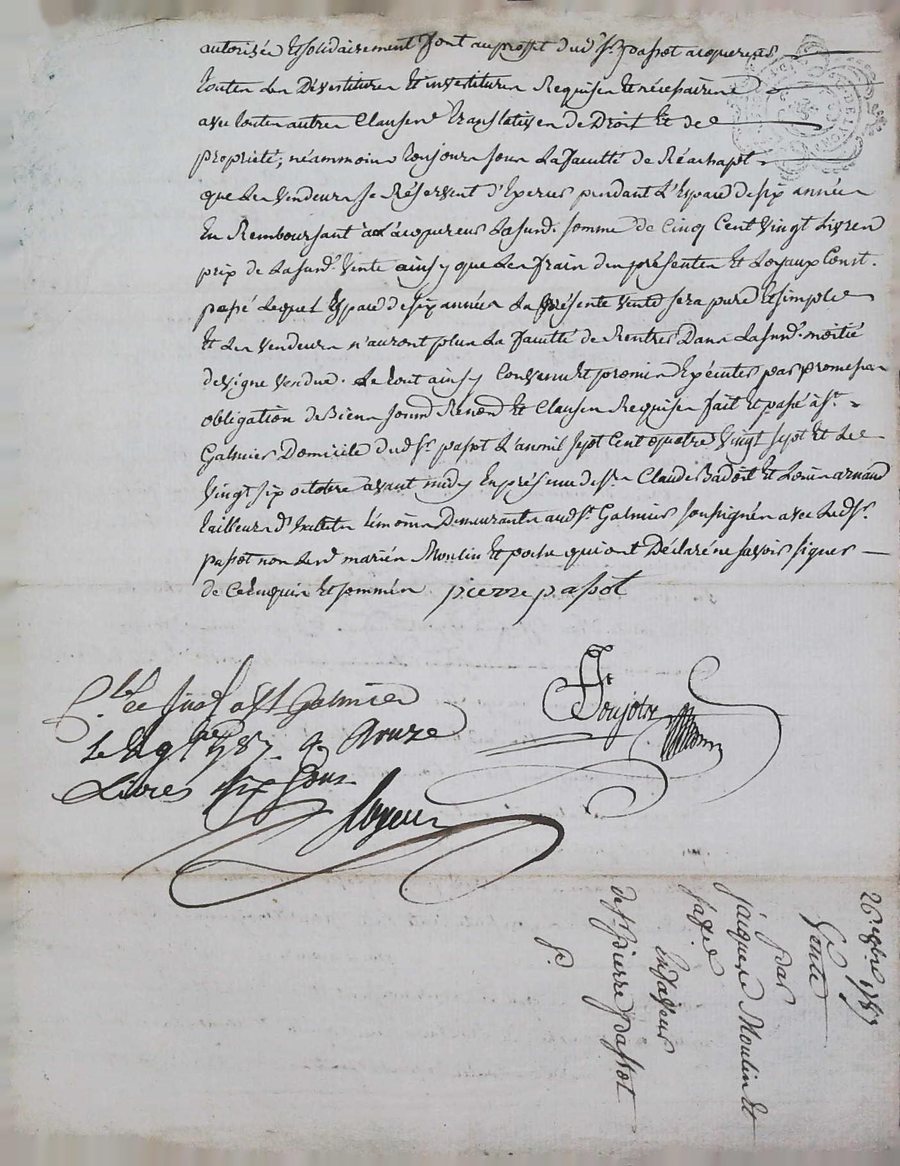 autorisée & solidairement font au proffit dud. Sr. passot acquereur
toutes les Dévestitures et investitures Requises et nécessaires
avec toutes autres Clauses translatives de Droit et de
propriété, néammoins toujours sous La faculté de Réachapt
que Les Vendeurs se Réservent d'Exercer pendant L'Espace de six années
En Remboursant à L'acquereur La susd. somme de Cinq Cent Vingt Livres
prix de La susd. Vente ainsy que Les frais des présentes et Loyaux Cout.
passé Lequel Espace de six années La présente vente sera pure et simple
et Les Vendeurs n'auront plus La faculté de Rentrer Dans La susd. moitié
de Vigne vendue. Le tout ainsy Convenu et promis Exécuter par promesse
obligation de Biens soumd. Renond. et Clauses Requises fait et passé à St.
Galmier Domicile dud. Sr. passot L'an mil sept Cent quatre Vingt sept et Le
Vingt six octobre avant midy En présence de Srs. Claude Badoit et Louis arnaud
tailleur d'habits témoins Demeurants aud. St. Galmier soussignés avec Led. Sr.
passot non Lesd. mariés Moulin et qui ont Déclaré ne savoir signer
de Ce Enquis et sommés pierre passot
St Galmier
1787
Livres six sous
26 8bre 1787
Vente
par
jacques Moulin et
sa
En faveur
de Sr. pierre passot